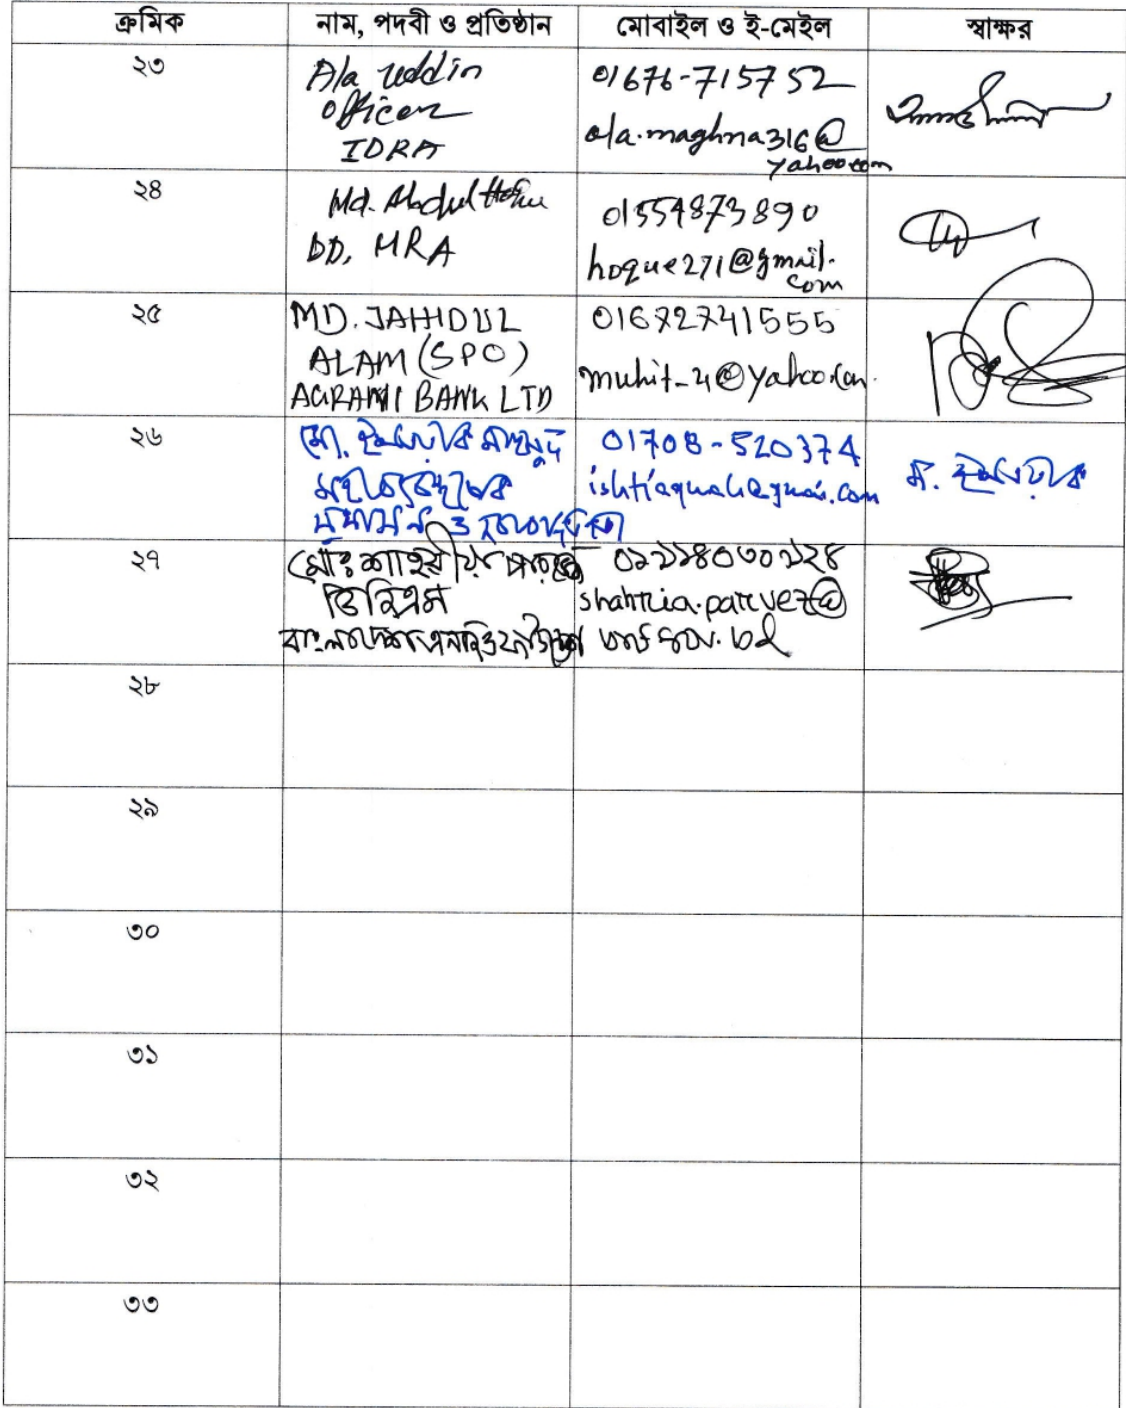 ক্রমিক নাম, পদবী ও প্রতিষ্ঠান মোবাইল ও ই-মেইল স্বাক্ষর
২৩
Ala uddin
officer
IDRA
01676-715752
ala.maghna316@
yahoo.com
২৪
Md. Abdul
DD, MRA
01554873890
hoque271@gmail.
com
২৫
MD. JAHIDUL
ALAM (SPO)
AGRANI BANK LTD
01672741555
muhit_4@yahoo.com.
২৬
মো. ইশতিয়াক মাহমুদ
ও
01708-520374
মো. ইশতিয়াক
২৭
মোঃ শাহরীয়ার পারভেজ
ডিবিএম
০১১১৪০৩০১২৪
shahria.parvez@
gov.bd
২৮
২৯
৩০
৩১
৩২
৩৩